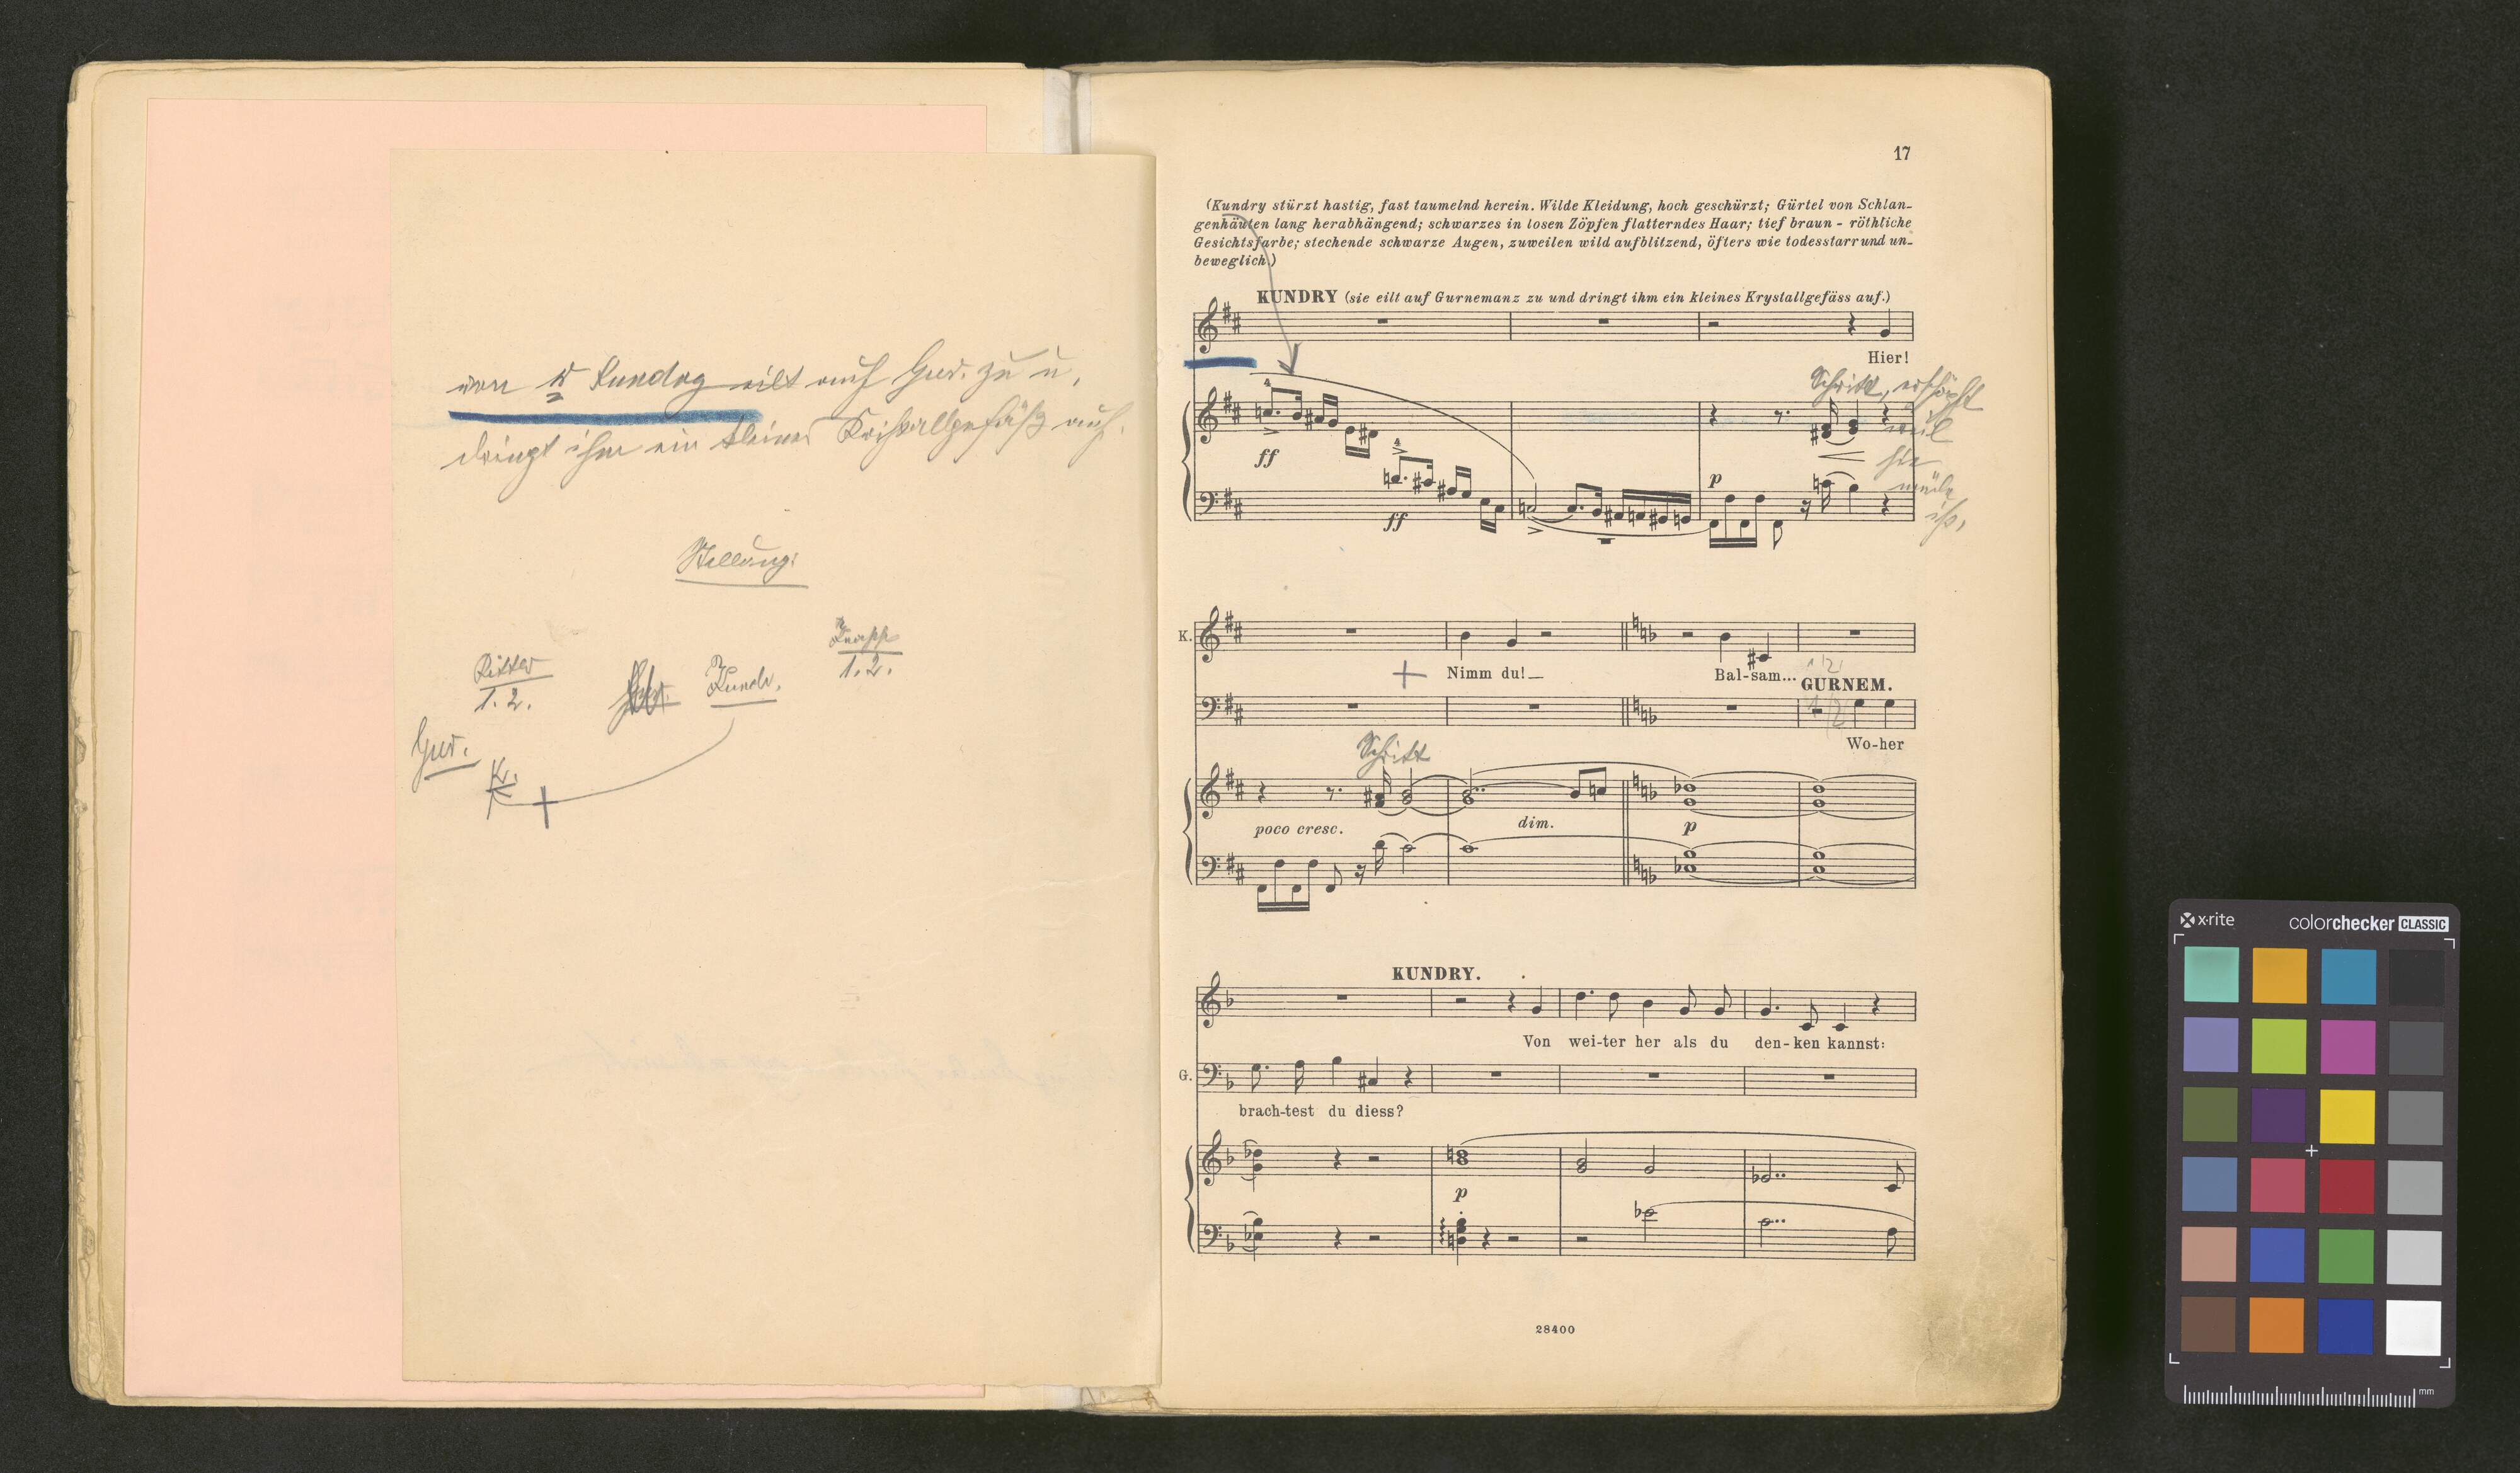 von r Kundry eilt auf Gur. zu u.
dringt ihm ein kleines Kristallgefäß auf.
Stellung:
Knapp
1. 2.
Ritter
1. 2.
Gur.
Kundr.
Gur.
K.
17
(Kundry stürzt hastig, fast taumelnd herein. Wilde Kleidung, hoch geschürzt; Gürtel von Schlan-
genhäuten lang herabhängend; schwarzes in losen Zöpfen flatterndes Haar; tief braun - röthliche
Gesichtsfarbe; stechende schwarze Augen, zuweilen wild aufblitzend, öfters wie todesstarr und un-
beweglich.)
KUNDRY (sie eilt auf Gurnemanz zu und dringt ihm ein kleines Krystallgefäss auf.)
Hier!
Schritt, erschöpft
weil
sie
müde
ist,
4
4
ff
ff
p
K.
+ Nimm du!_ Bal-sam...
1 2
GURNEM.
1/2
Wo-her
Schritt
poco cresc. dim. p
KUNDRY.
Von wei-ter her als du den-ken kannst:
G.
brach-test du diess?
p
28400
x·rite colorchecker CLASSIC
mm